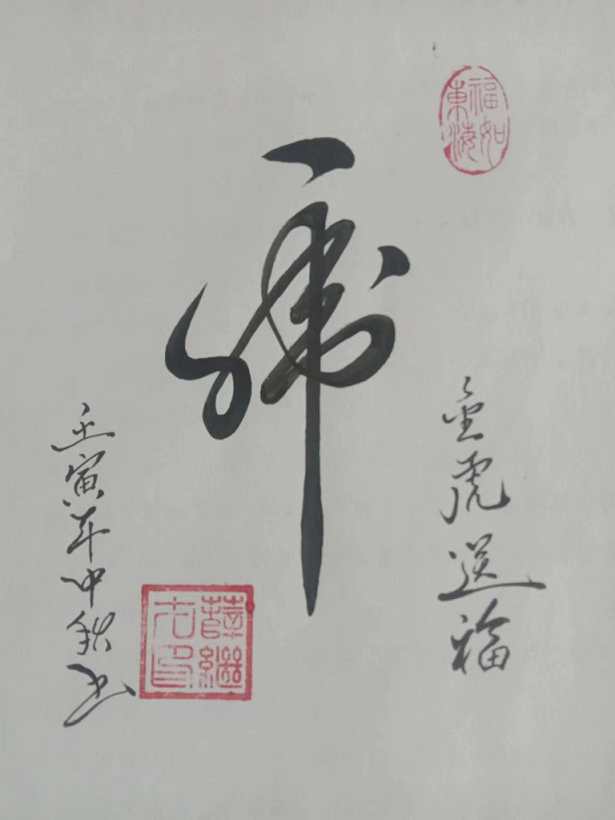 福如東海
虎
金虎送福
壬寅年中秋书